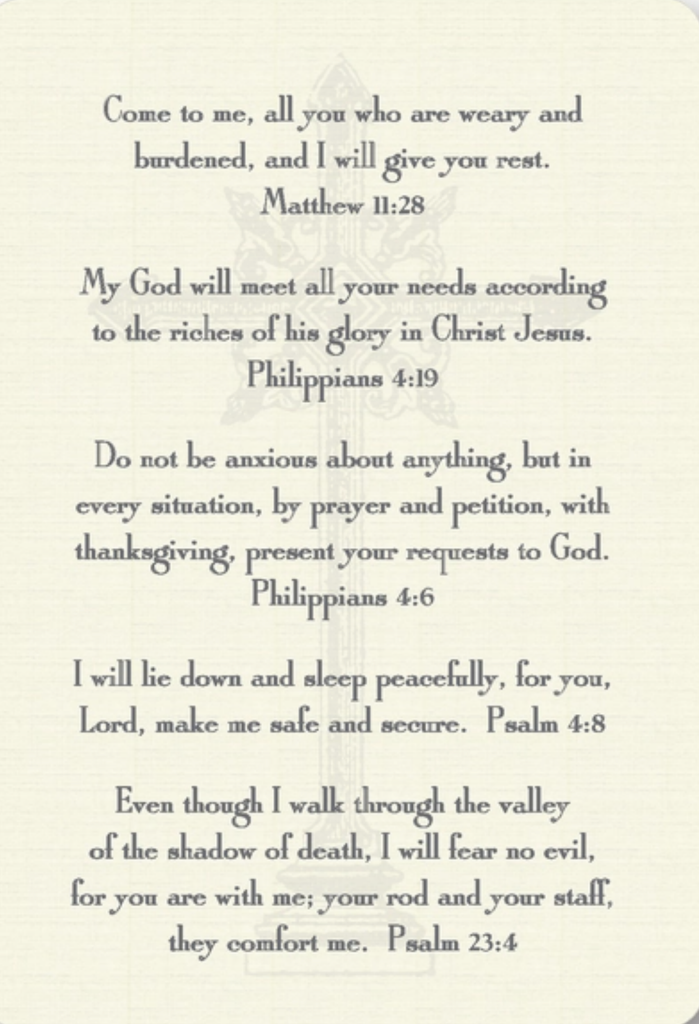 Come to me, all you who are weary and
burdened, and I will give you rest.
Matthew 11:28
My God will meet all your needs according
to the riches of his glory in Christ Jesus.
Philippians 4:19
Do not be anxious about anything, but in
every situation, by prayer and petition, with
thanksgiving, present your requests to God.
Philippians 4:6
I will lie down and sleep peacefully, for you,
Lord, make me safe and secure. Psalm 4:8
Even though I walk through the valley
of the shadow of death, I will fear no evil,
for you are with me; your rod and your staff,
they comfort me. Psalm 23:4